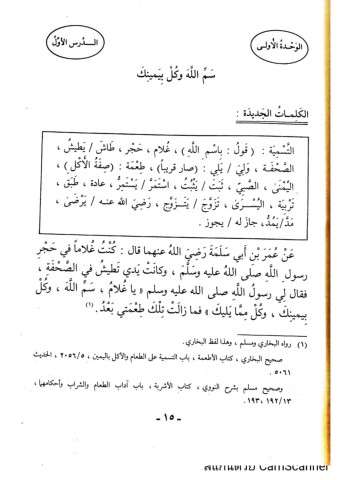 الوَحْدةُ الأولى
الــدرس الأوّلُ
سَمِّ اللَّهَ وكُلْ بِيَمينِكَ
الكلِمـاتُ الجَديدَة :
التَّسْمِيَة : ( قَولُ : بِاسْمِ اللَّهِ ) ، غُلام ، حَجْر ، طَاشَ / يَطِيشُ ،
الصَّحْفَـة ، وَلِيَ / يَلي : (صار قريباً) ، طِعْمَة : (صِفَةُ الأَكْلِ) ،
اليُمْنَى ، الصَّبِيّ ، ثَبَتَ / يَثْبُتُ ، اسْتَمَرَّ / يَسْتَمِرُّ ، عادة ، طَبَق ،
تَرْبِيَة ، اليُسْـرَى ، تَزَوَّجَ / يَتَـزَوَّج ، رَضِيَ اللَّهُ عنـه / يَرْضَى ،
مَدَّ/يَمُدُّ، جازَ له / يجوز .
عَنْ عُمَرَ بن أبي سَلَمَةَ رَضِيَ اللهُ عنهما قال : كُنْتُ غُلاماً في حَجْرِ
رسولِ اللَّهِ صلى اللهُ عليه وسَلَّمَ ، وكانَتْ يَدي تَطيشُ في الصَّحْفَةِ ،
فقال لِي رسولُ اللَّهِ صلى الله عليه وسلم « يا غُلامُ ، سَمِّ اللَّهَ ، وكُلْ
بِيمينِكَ ، وكُلْ مِمَّا يَليكَ » فما زالَتْ تِلْكَ طِعْمَتي بَعْدُ .(١)
(١) رواه البخاري ومسلم ، وهذا لفظ البخاري.
صحيح البخاري ، كتاب الأطعمة ، باب التسمية على الطعام والأكل باليمين ، ٢٠٥٦/٥ ، الحديث
٥٠٦١ .
وصحيح مسلم بشرح النووي ، كتاب الأشربة ، باب آداب الطعام والشراب وأحكامهما ،
١٩٢/١٣ ، ١٩٣.
- ١٥ -
สแกนด้วย CamScanner